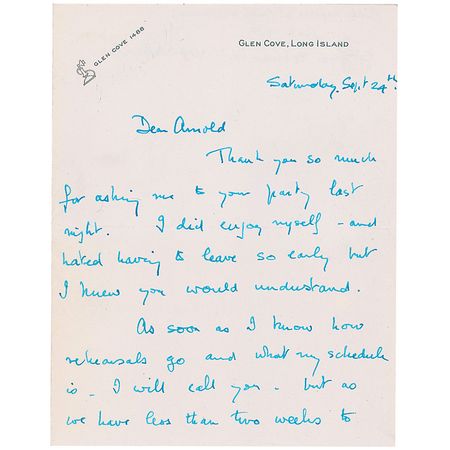 GLEN COVE 1488
GLEN COVE, LONG ISLAND
Saturday, Sept 24th.
Dear Arnold
Thank you so much
for asking me to your party last
night. I did enjoy myself - and
hated having to leave so early but
I knew you would understand.
As soon as I know how
rehearsals go and what my schedule
is - I will call you - but as
we have less than two weeks to